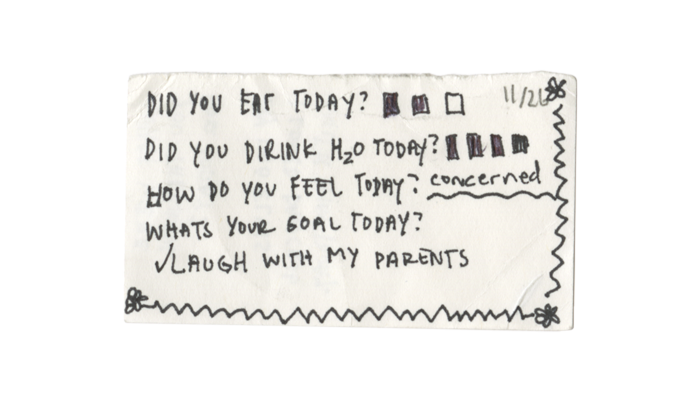 DID YOU EAT TODAY? 11/26
DID YOU DIRINK H₂O TODAY?
HOW DO YOU FEEL TODAY? concerned
WHATS YOUR GOAL TODAY?
✓LAUGH WITH MY PARENTS